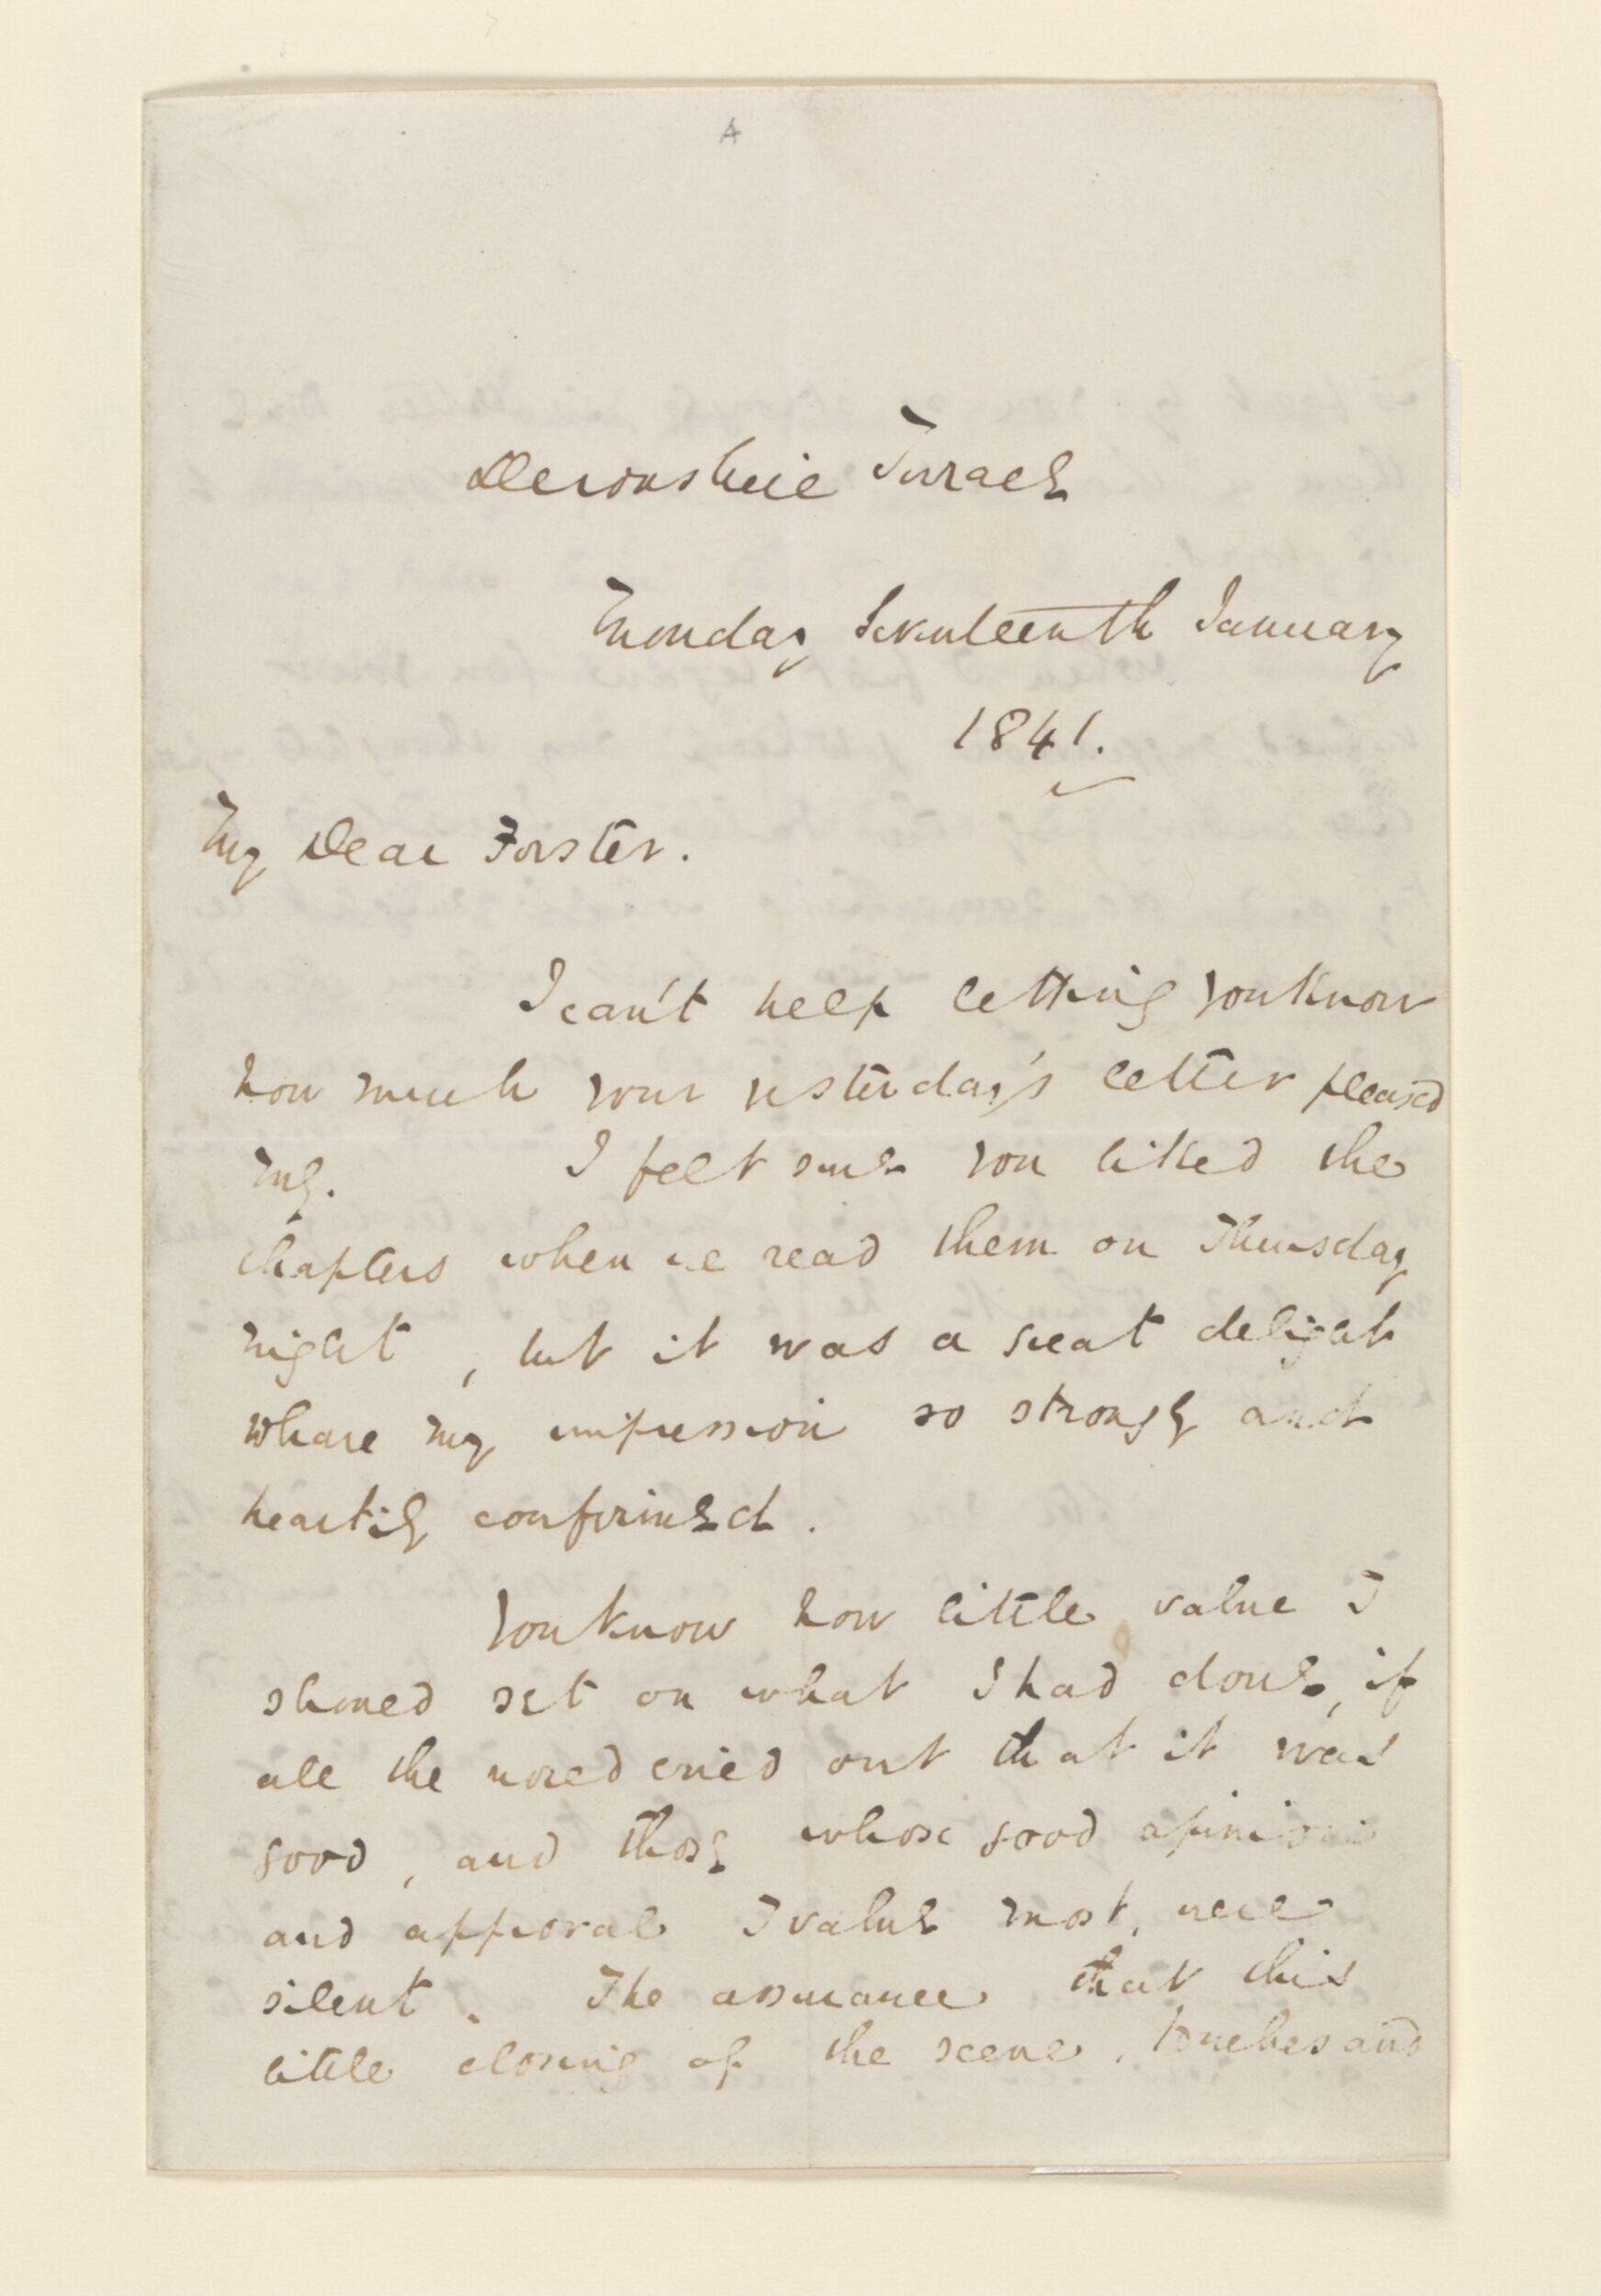 A
Devonshire Terrace
Monday Seventeenth January
1841.
My Dear Forster.
I can't help letting you know
how much your yesterday's letter pleased
me. I felt sure you liked the
chapters when we read them on Thursday
night, but it was a great delight
to have my impression so strongly and
heartily confirmed.
You know how little value I
should set on what I had done, if
all the world cried out that it was
good, and those whose good opinion
and approval I value most, were
silent. The assurance that this
little closing of the scene, touches and